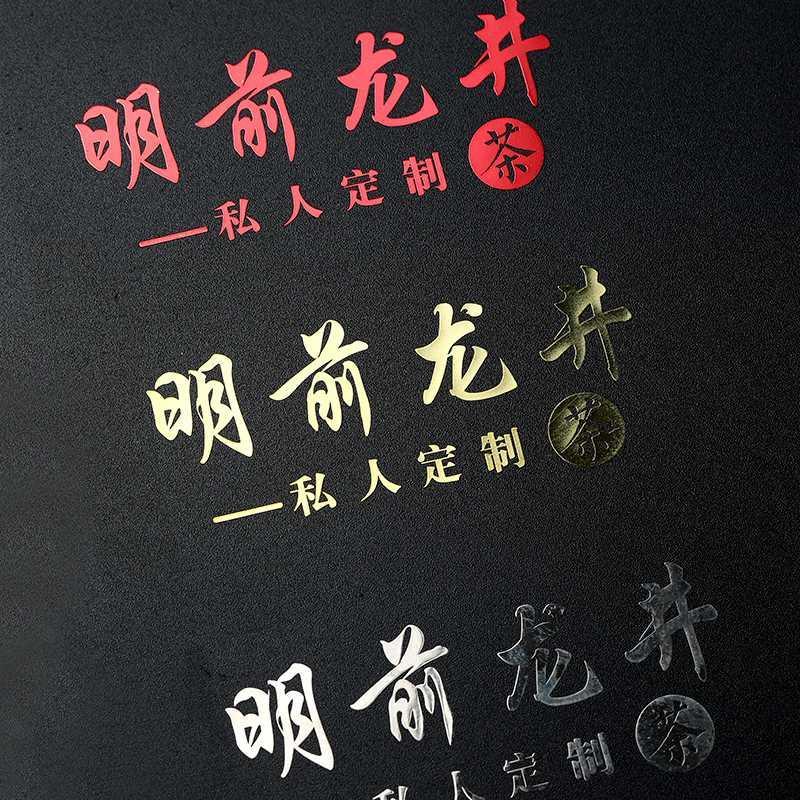 明前龙井
茶
—私人定制
明前龙井
茶
—私人定制
明前龙井
茶
私人定制